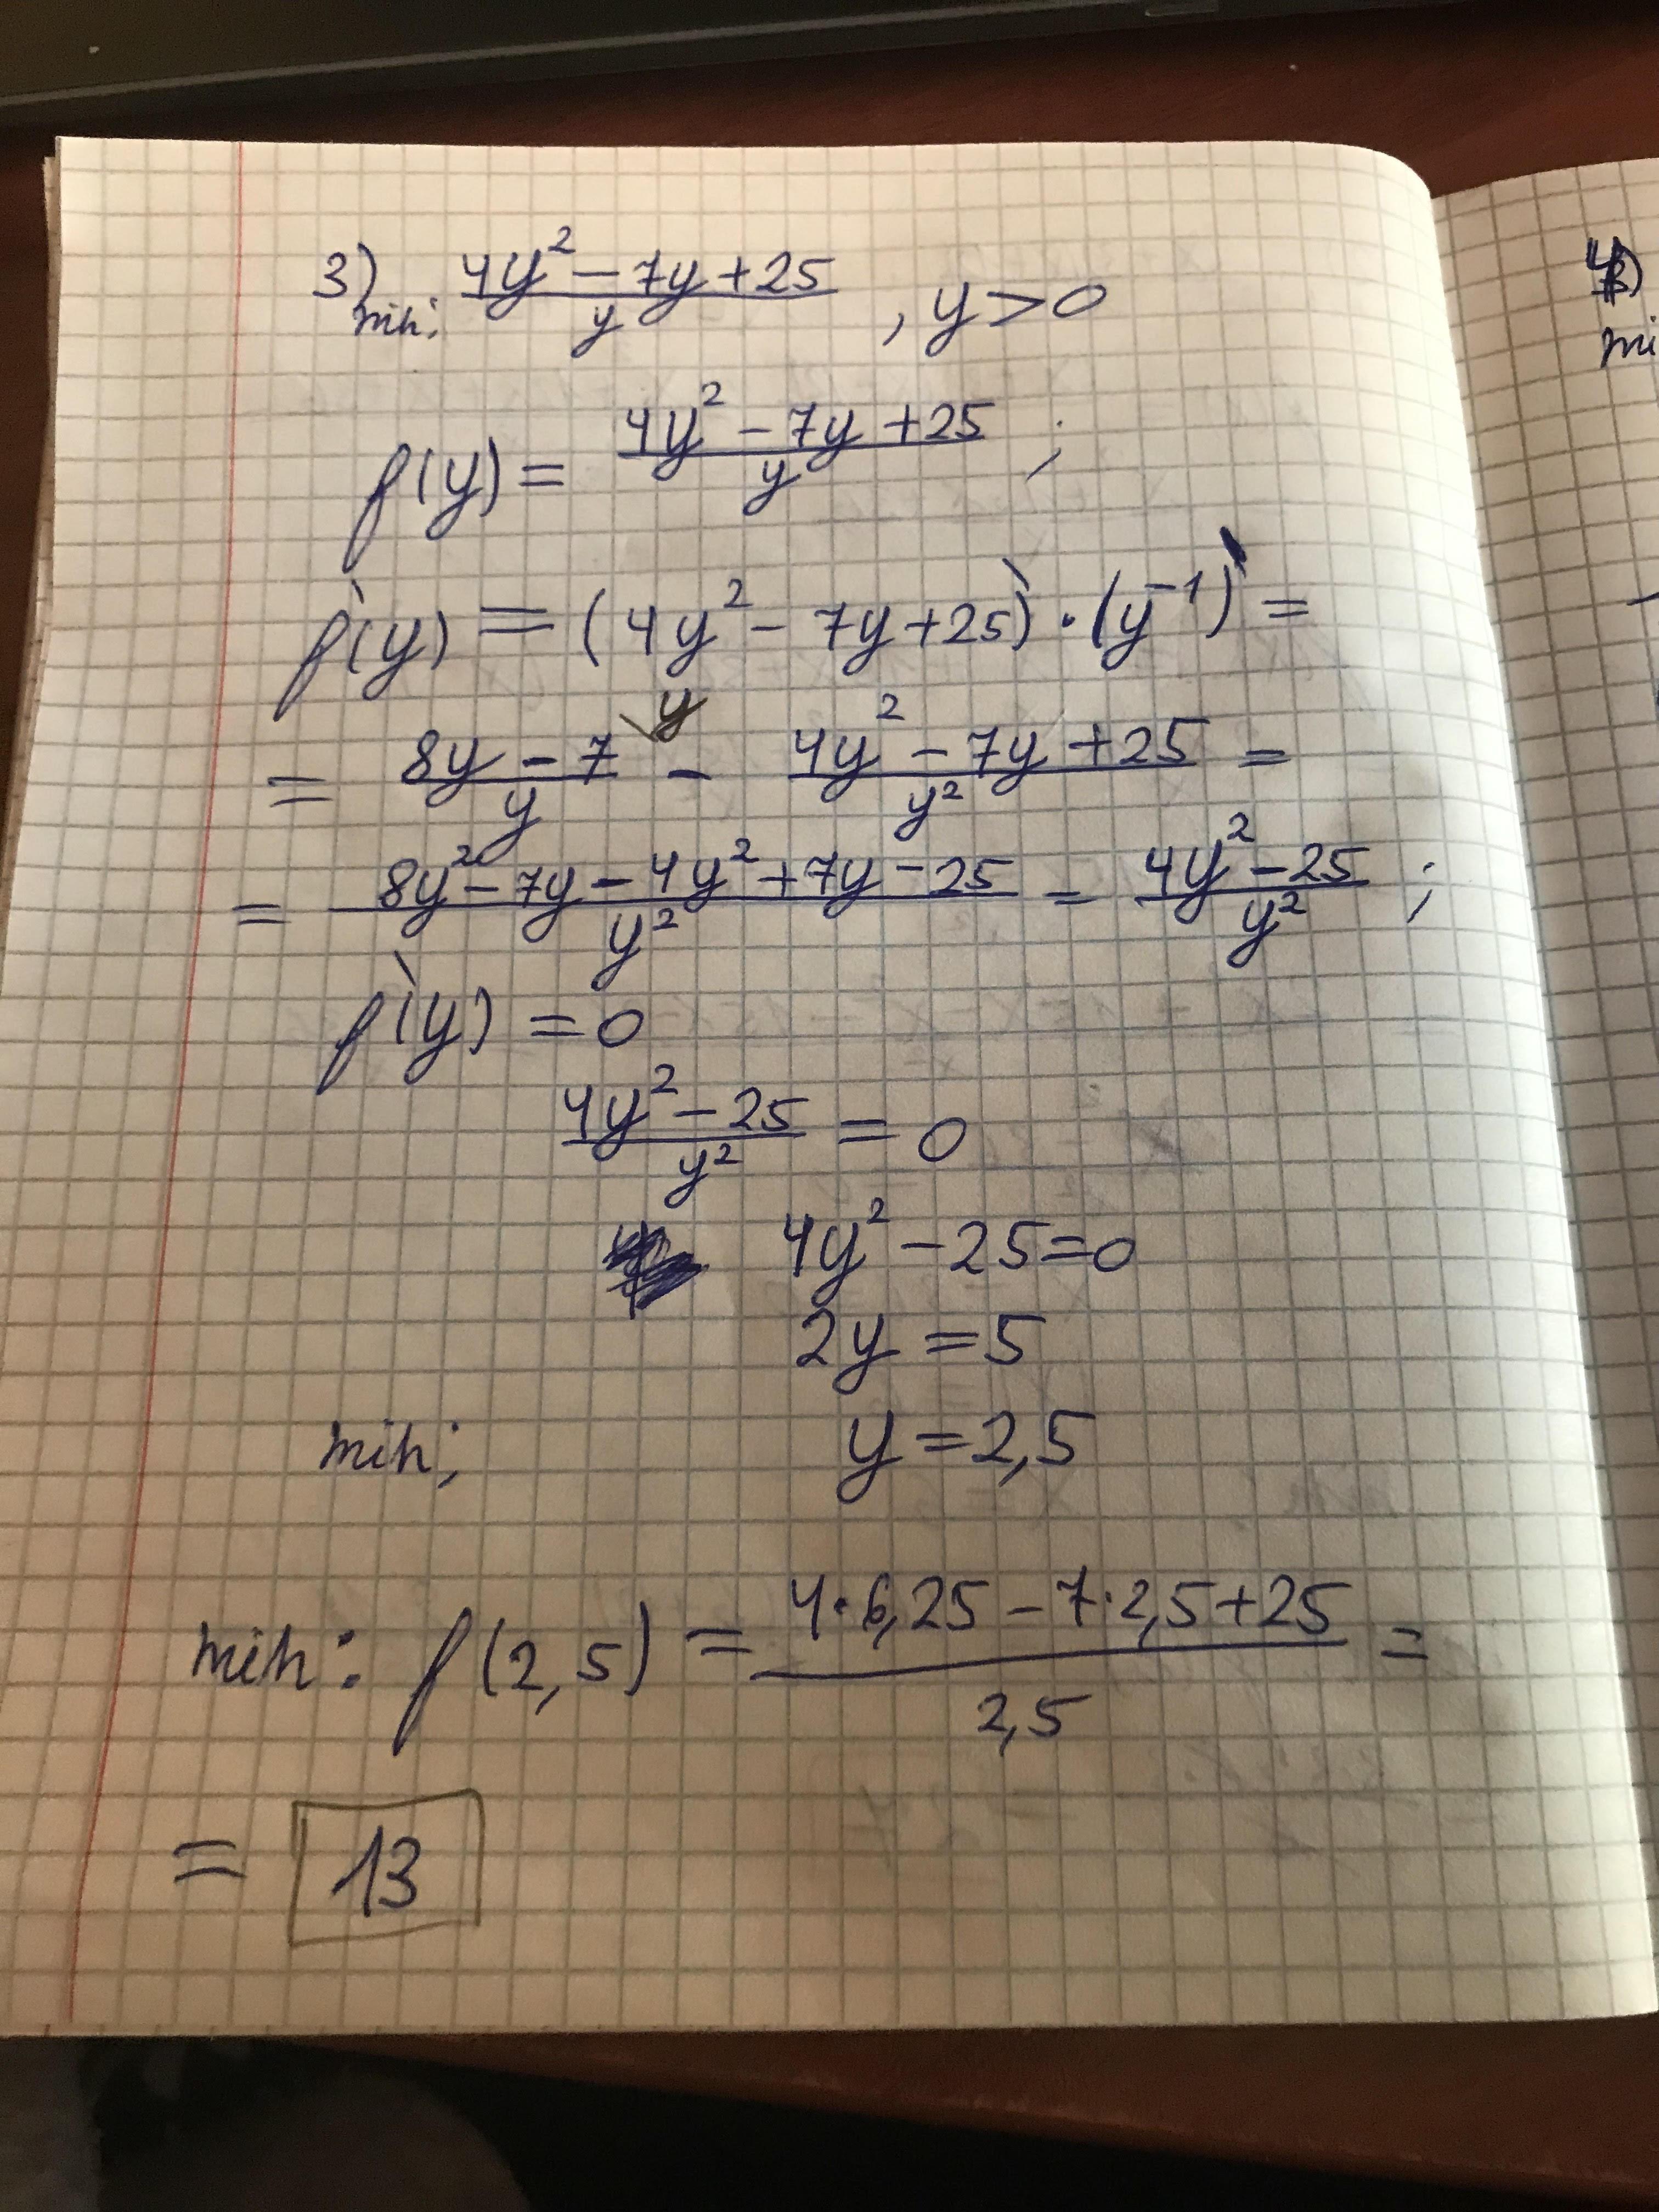 3) min: (4y² - 7y + 25)/y , y > 0
f(y) = (4y² - 7y + 25)/y ;
f'(y) = (4y² - 7y + 25)' · (y⁻¹)' =
= (8y - 7)/y \y - (4y² - 7y + 25)/y² =
= (8y² - 7y - 4y² + 7y - 25)/y² = (4y² - 25)/y² ;
f'(y) = 0
(4y² - 25)/y² = 0
4y² - 25 = 0
2y = 5
min; y = 2,5
min: f(2,5) = (4·6,25 - 7·2,5 + 25)/2,5 =
= 13
mi